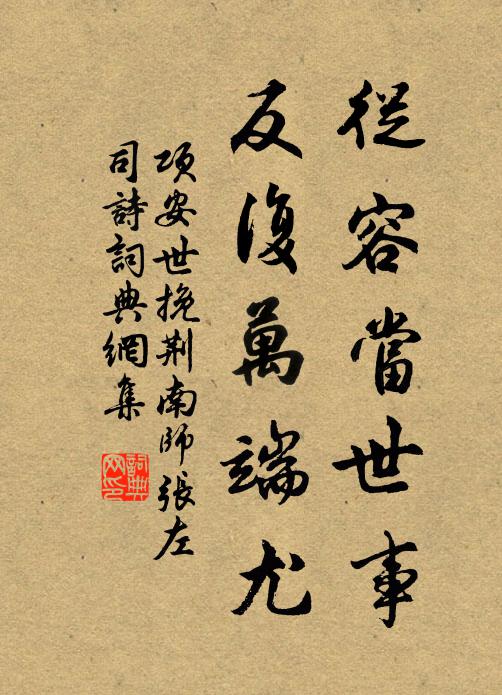 從容當世事
反復萬端尤
項安世挽荆南師張左
司詩詞典網集
詞典
网印